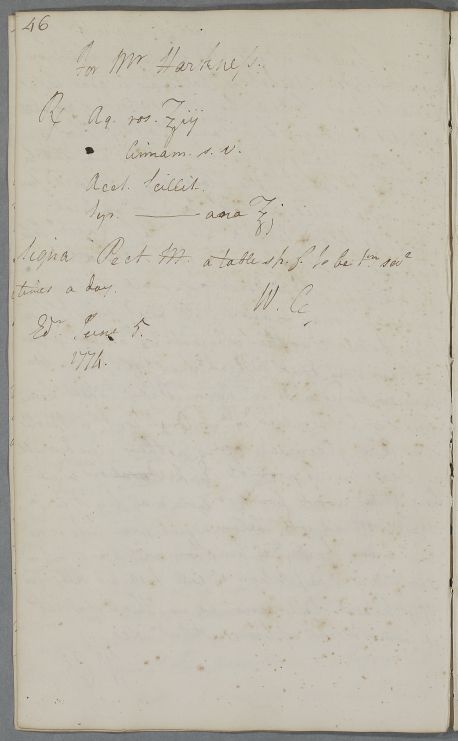 46
For Mr. Harkness.
℞ Aq. ros. ℥iij
Cinnam. s. v.
Acet. Scillit.
Syr. ——— ana ℥j
Signa Pect. M. a table sp. f. to be tn sevl
times a day.
W. C.
Edr. June 5.
1774.